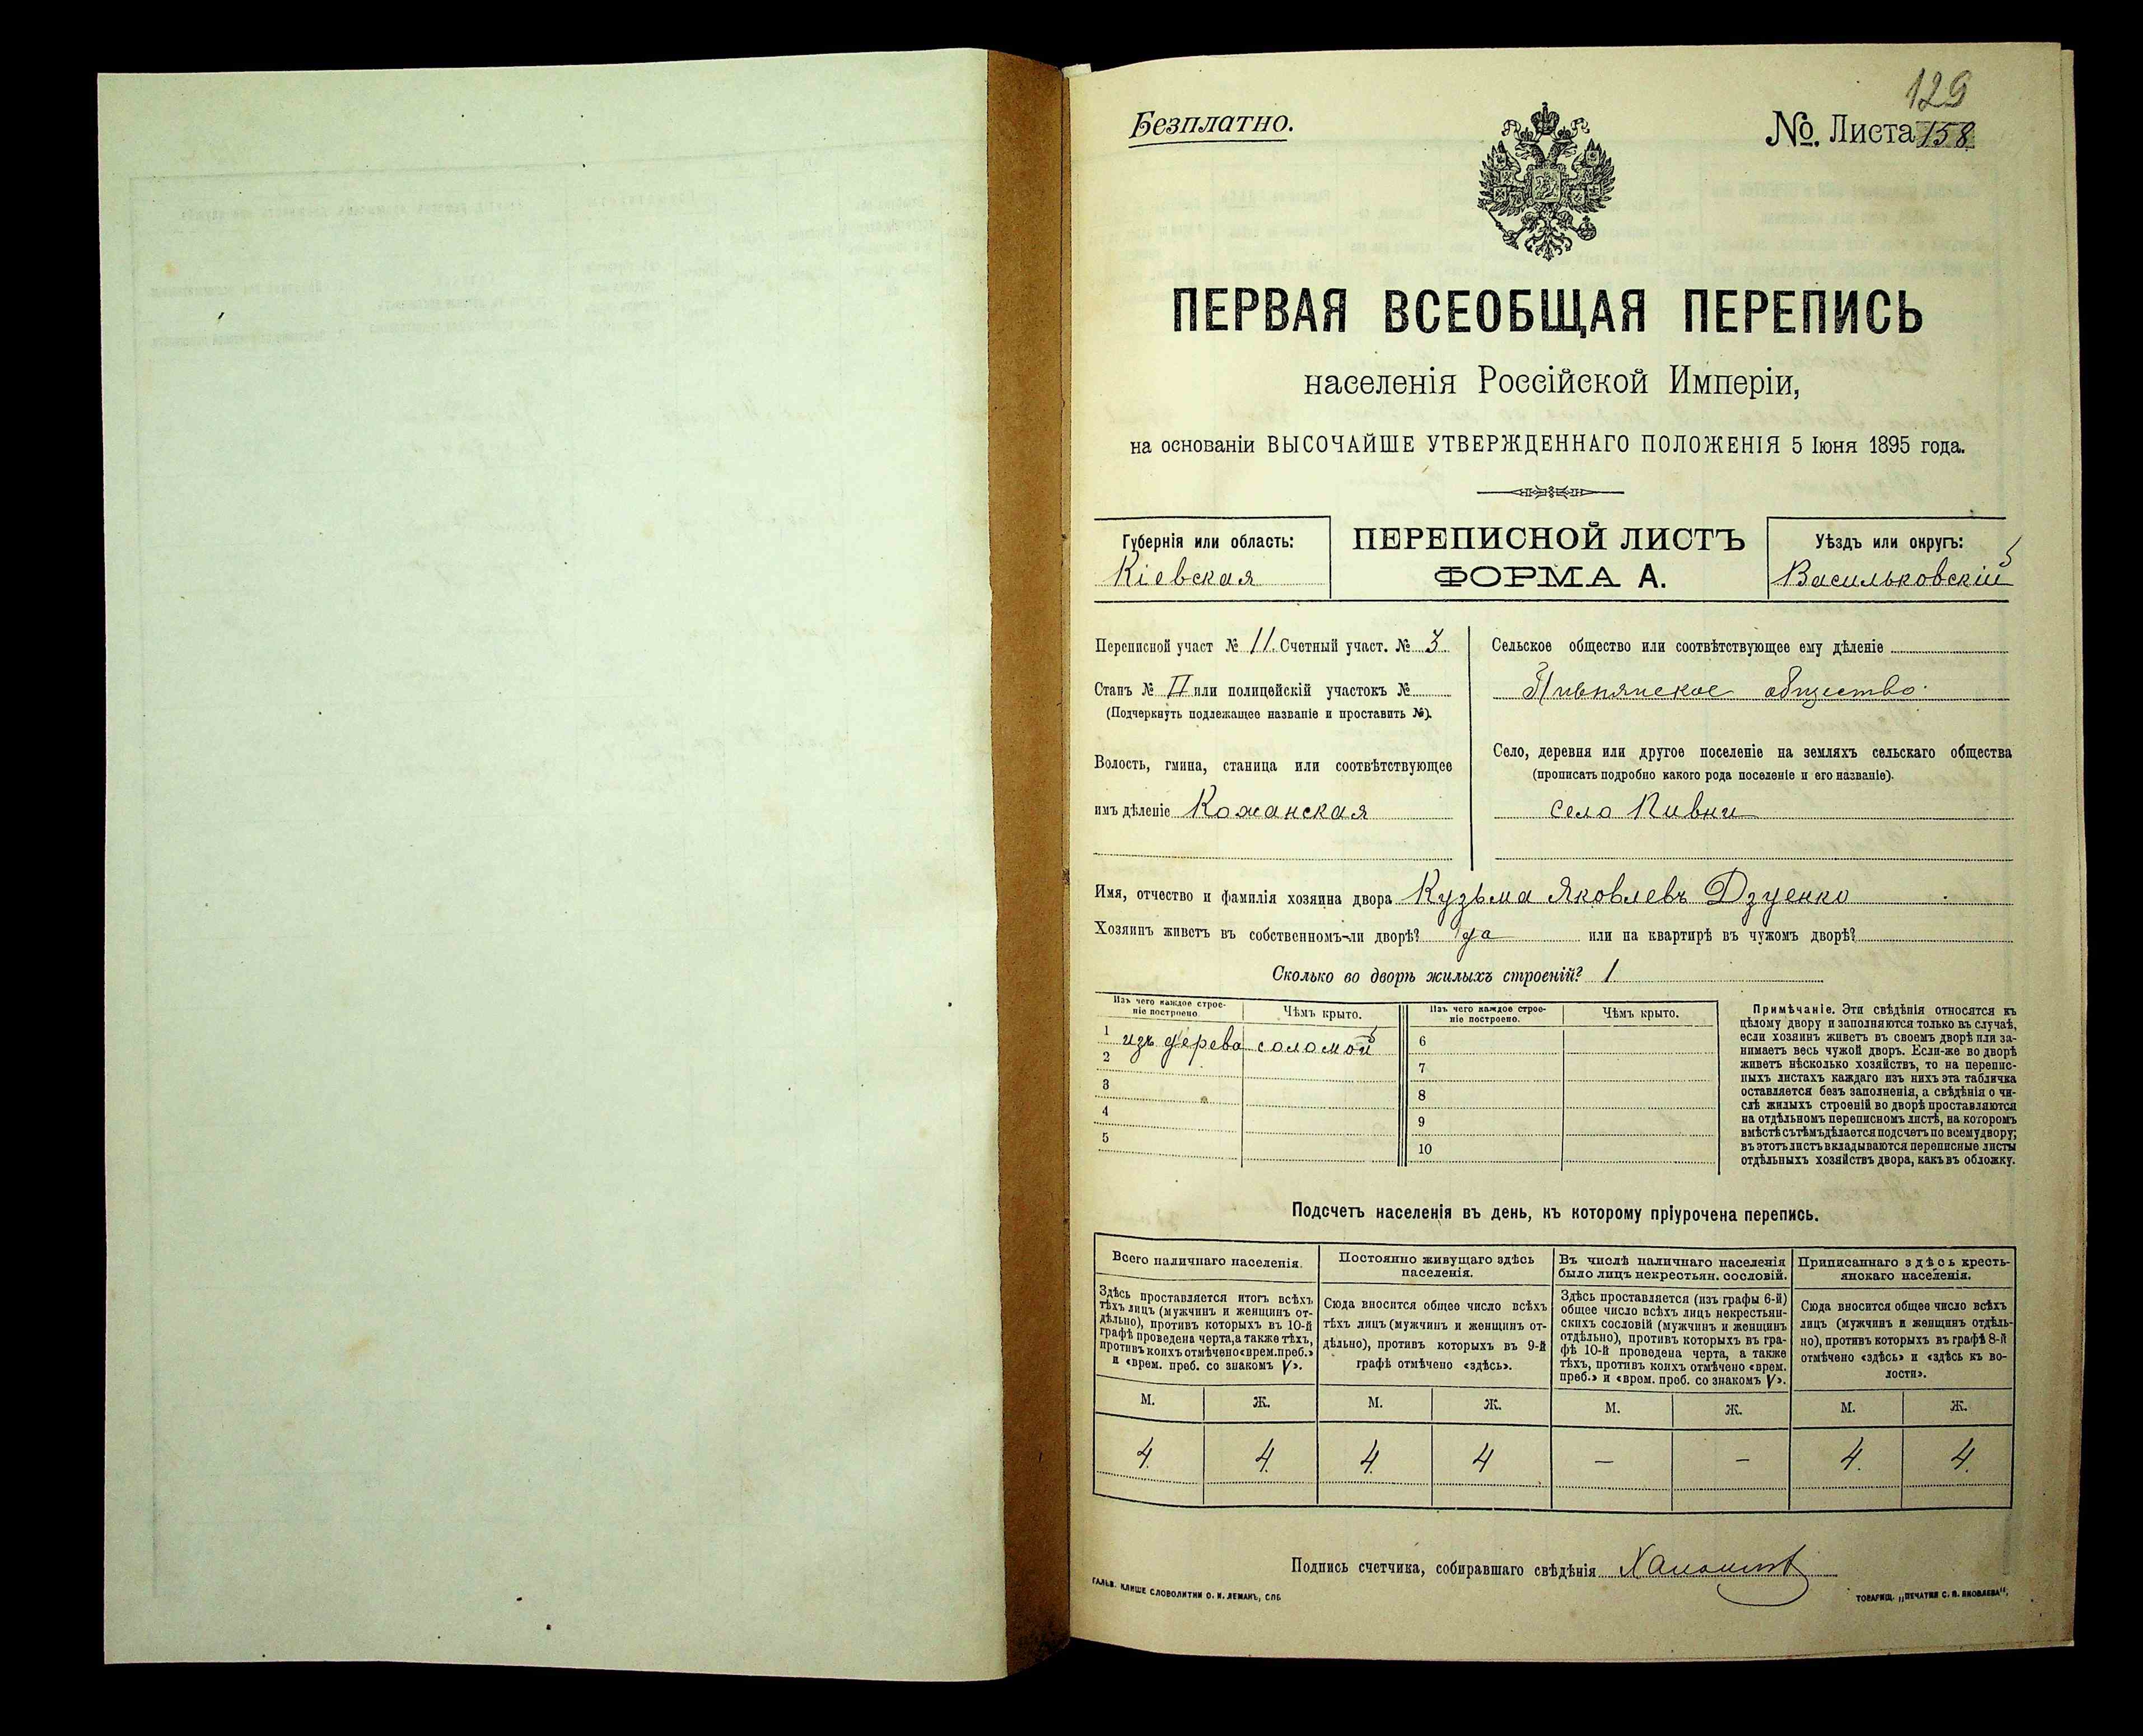 129
Безплатно.
№. Листа 158
ПЕРВАЯ ВСЕОБЩАЯ ПЕРЕПИСЬ
населенія Россійской Имперіи,
на основаніи ВЫСОЧАЙШЕ УТВЕРЖДЕННАГО ПОЛОЖЕНІЯ 5 Іюня 1895 года.
Губернія или область:
Кіевская
ПЕРЕПИСНОЙ ЛИСТЪ
ФОРМА А.
Уѣздъ или округъ:
Васильковскій
Переписной участ № 11. Счетный участ. № 3
Станъ № II или полицейскій участокъ №
(Подчеркнуть подлежащее названіе и проставить №).
Волость, гмина, станица или соотвѣтствующее
имъ дѣленіе Кожанская
Сельское общество или соотвѣтствующее ему дѣленіе
Пивнянское общество.
Село, деревня или другое поселеніе на земляхъ сельскаго общества
(прописать подробно какого рода поселеніе и его названіе).
село Пивни
Имя, отчество и фамилія хозяина двора Кузьма Яковлевъ Дзуенко
Хозяинъ живетъ въ собственномъ-ли дворѣ? да или на квартирѣ въ чужомъ дворѣ?
Сколько во дворѣ жилыхъ строеній? 1
Изъ чего каждое строе-
ніе построено.
Чѣмъ крыто.
Изъ чего каждое строе-
ніе построено.
Чѣмъ крыто.
1 изъ дерева соломой
2
3
4
5
6
7
8
9
10
Примѣчаніе. Эти свѣдѣнія относятся къ
цѣлому двору и заполняются только въ случаѣ,
если хозяинъ живетъ въ своемъ дворѣ или за-
нимаетъ весь чужой дворъ. Если-же во дворѣ
живетъ нѣсколько хозяйствъ, то на перепис-
ныхъ листахъ каждаго изъ нихъ эта табличка
оставляется безъ заполненія, а свѣдѣнія о чи-
слѣ жилыхъ строеній во дворѣ проставляются
на отдѣльномъ переписномъ листѣ, на которомъ
вмѣстѣ съ тѣмъ дѣлается подсчетъ по всему двору;
въ этотъ листъ вкладываются переписные листы
отдѣльныхъ хозяйствъ двора, какъ въ обложку.
Подсчетъ населенія въ день, къ которому пріурочена перепись.
Всего наличнаго населенія.
Здѣсь проставляется итогъ всѣхъ
тѣхъ лицъ (мужчинъ и женщинъ от-
дѣльно), противъ которыхъ въ 10-й
графѣ проведена черта, а также тѣхъ,
противъ коихъ отмѣчено «врем. преб.»
и «врем. преб. со знакомъ V».
Постоянно живущаго здѣсь
населенія.
Сюда вносится общее число всѣхъ
тѣхъ лицъ (мужчинъ и женщинъ от-
дѣльно), противъ которыхъ въ 9-й
графѣ отмѣчено «здѣсь».
Въ числѣ наличнаго населенія
было лицъ некрестьян. сословій.
Здѣсь проставляется (изъ графы 6-й)
общее число всѣхъ лицъ некрестьян-
скихъ сословій (мужчинъ и женщинъ
отдѣльно), противъ которыхъ въ гра-
фѣ 10-й проведена черта, а также
тѣхъ, противъ коихъ отмѣчено «врем.
преб.» и «врем. преб. со знакомъ V».
Приписаннаго здѣсь кресть-
янскаго населенія.
Сюда вносится общее число всѣхъ
лицъ (мужчинъ и женщинъ отдѣль-
но), противъ которыхъ въ графѣ 8-й
отмѣчено «здѣсь» и «здѣсь къ во-
лости».
М. Ж. М. Ж. М. Ж. М. Ж.
4. 4. 4. 4 — — 4. 4.
Подпись счетчика, собиравшаго свѣдѣнія
ГАЛЬВ. КЛИШЕ СЛОВОЛИТНИ О. И. ЛЕМАНЪ, СПБ
ТОВАРИЩ. „ПЕЧАТНЯ С. П. ЯКОВЛЕВА“.